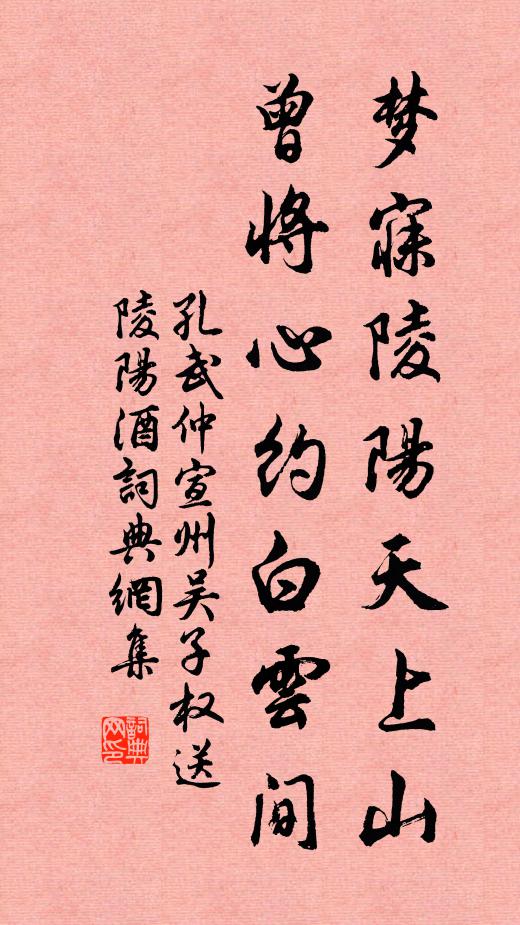 梦寐陵陽天上山
曾將心約白雲间
孔武仲宣州吴子权送
陵陽酒詞典網集
詞典网印